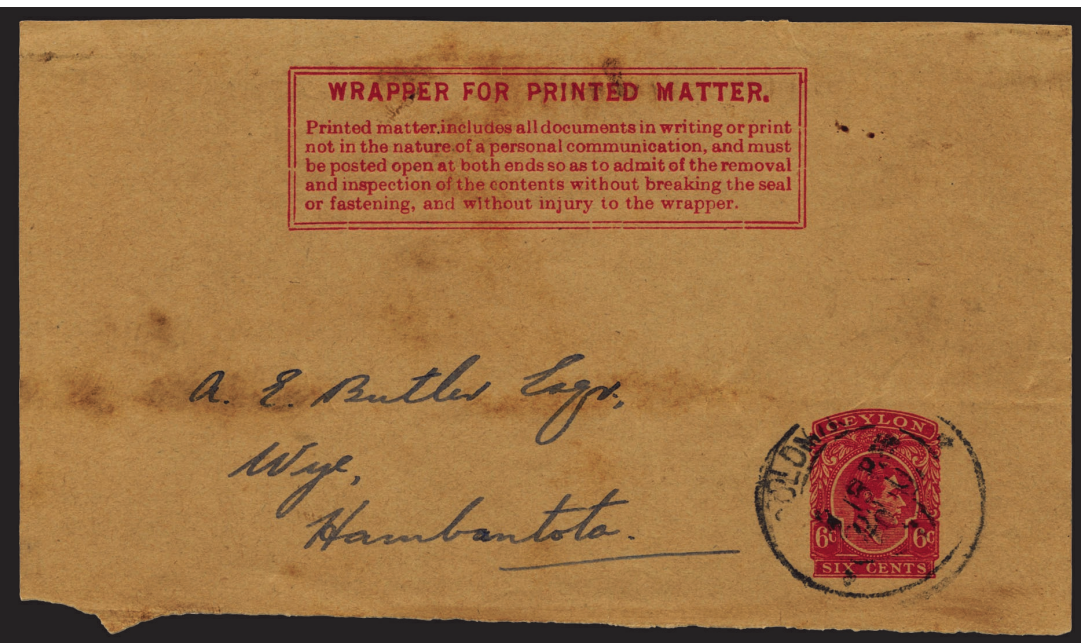 WRAPPER FOR PRINTED MATTER.
Printed matter.includes all documents in writing or print
not in the nature of a personal communication, and must
be posted open at both ends so as to admit of the removal
and inspection of the contents without breaking the seal
or fastening, and without injury to the wrapper.
A. E. Butler Esqr.,
Wye,
Hambantota.
CEYLON
6c 6c
SIX CENTS